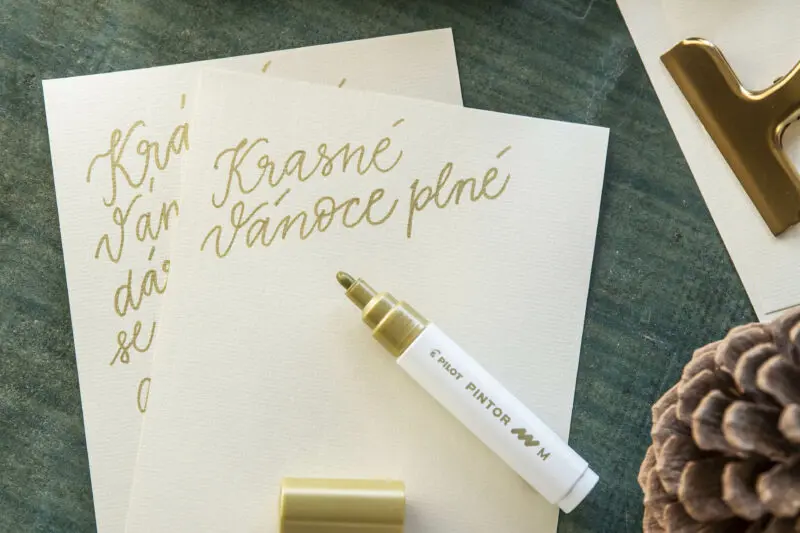 Krá
Ván
dá
se
Krasné
Vánoce plné
PILOT PINTOR M